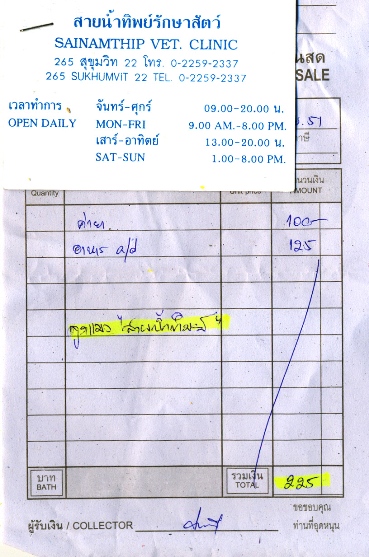 สายน้ำทิพย์รักษาสัตว์
SAINAMTHIP VET. CLINIC
265 สุขุมวิท 22 โทร. 0-2259-2337
265 SUKHUMVIT 22 TEL. 0-2259-2337
เวลาทำการ จันทร์-ศุกร์ 09.00-20.00 น.
OPEN DAILY MON-FRI 9.00 AM.-8.00 PM.
เสาร์-อาทิตย์ 13.00-20.00 น.
SAT-SUN 1.00-8.00 PM.
นสด
SALE
51
Quantity Unit price AMOUNT
ค่ายา 100-
อาหาร a/d 125
บาท รวมเงิน
BATH TOTAL 225
ขอขอบคุณ
ผู้รับเงิน / COLLECTOR ท่านที่อุดหนุน